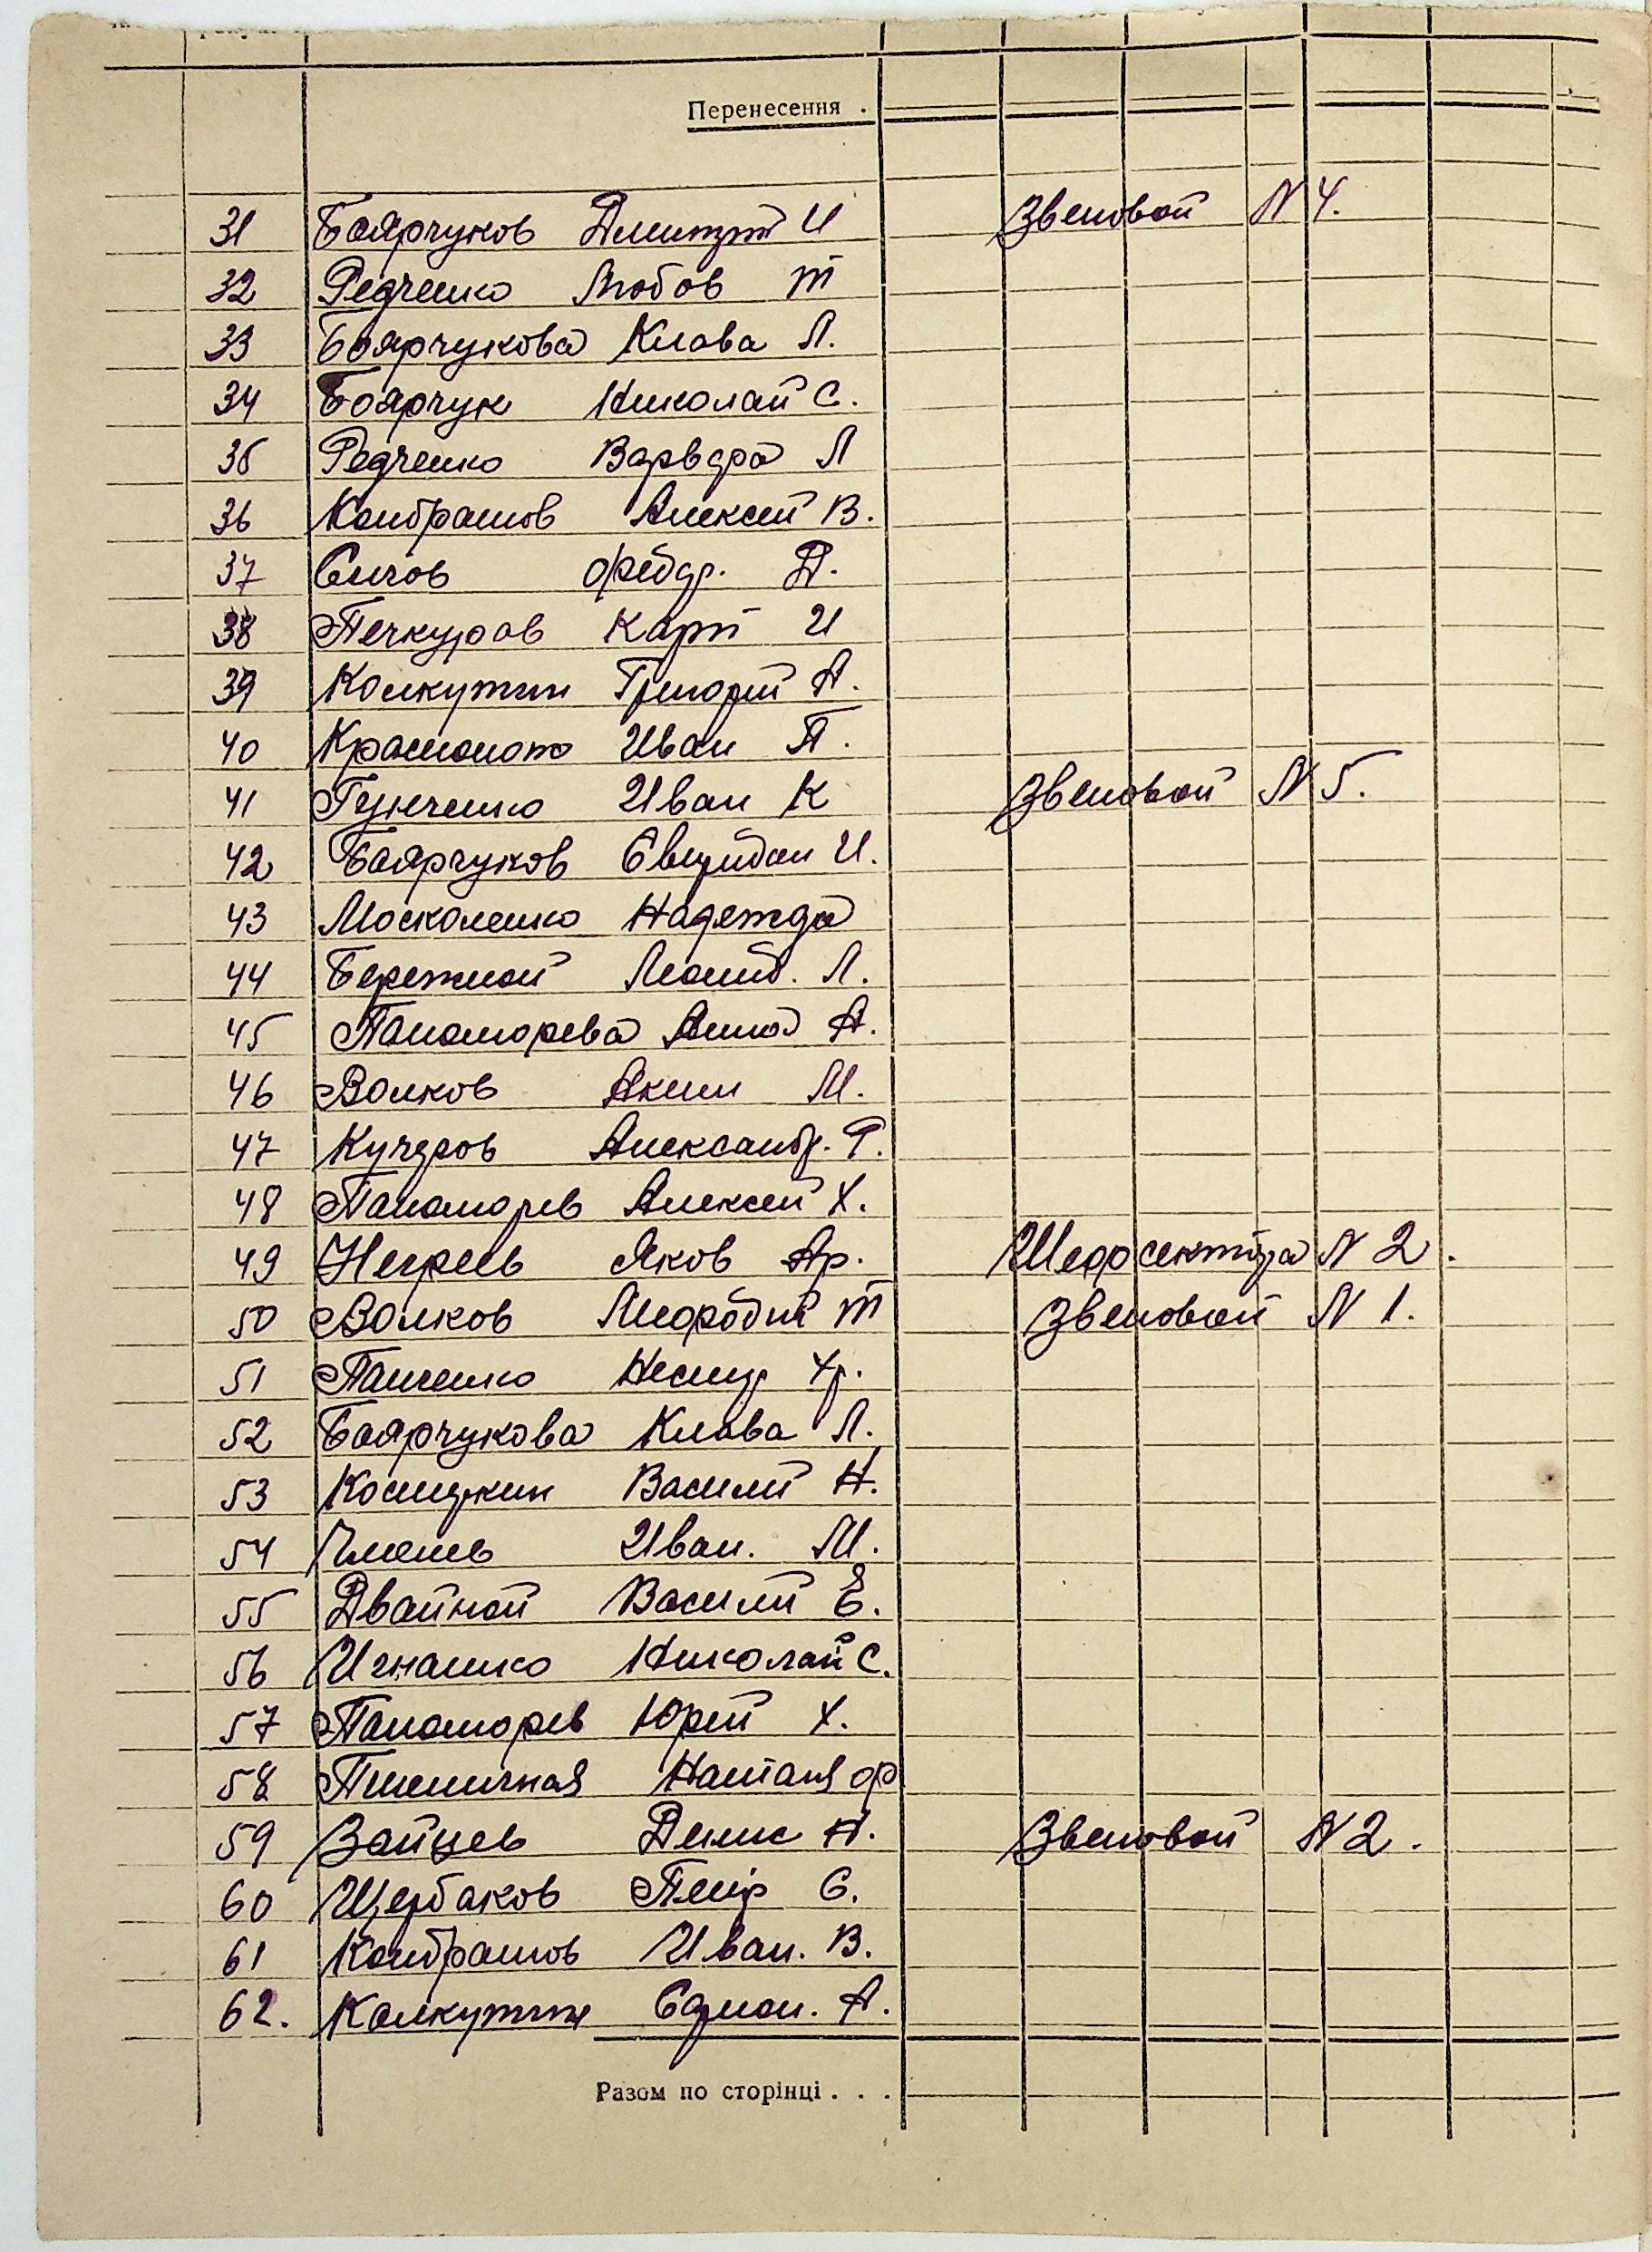 Перенесення .
31 Боярчуков Дмитрий И Звеновой N 4.
32 Редченко Любов Т
33 Боярчукова Клава Л.
34 Боярчук Николай С.
35 Редченко Варвара Л
36 Кондрашов Алексей В.
37 Сичов Федор. Д.
38 Печкуров Карп И
39 Колкутин Григорий А.
40 Иван П.
41 Иван К Звеновой N 5.
42 Боярчуков Свиридон И.
43 Москаленко Надежда
44 Бережной Леонид. Л.
45 Панамарева Анна А.
46 Волков Аким М.
47 Кучеров Александр. Г.
48 Панамарев Алексей Х.
49 Негреев Яков Ар. Шеф сектора N 2.
50 Волков Т Звеновой N 1.
51 Панченко Нестер Хр.
52 Боярчукова Клава Л.
53 Василий Н.
54 Иван. М.
55 Двойной Василий Е.
56 Игнашко Николай С.
57 Панамарев Юрий Х.
58 Пшеничная Наталя Ф
59 Зайцев Денис Н. Звеновой N 2.
60 Щербаков Петр С.
61 Кондрашов Иван. В.
62. Колкутин А.
Разом по сторінці . . .